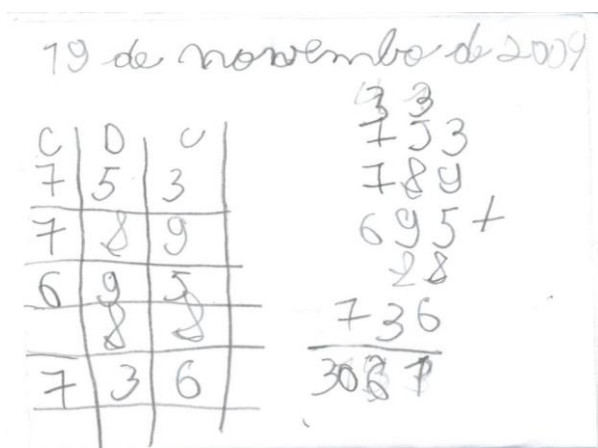 19 de novembo de 2009
C D U
7 5 3
7 8 9
6 9 5
8 8
7 3 6
3 3
753
789
695 +
28
736
3067